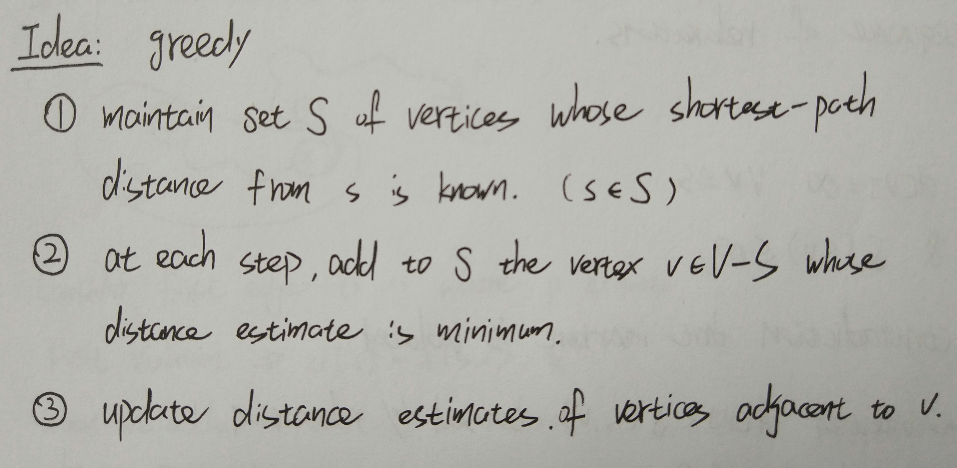 Idea: greedy
① maintain set S of vertices whose shortest-path
distance from s is known. (s∈S)
② at each step, add to S the vertex v∈V-S whose
distance estimate is minimum.
③ update distance estimates of vertices adjacent to v.